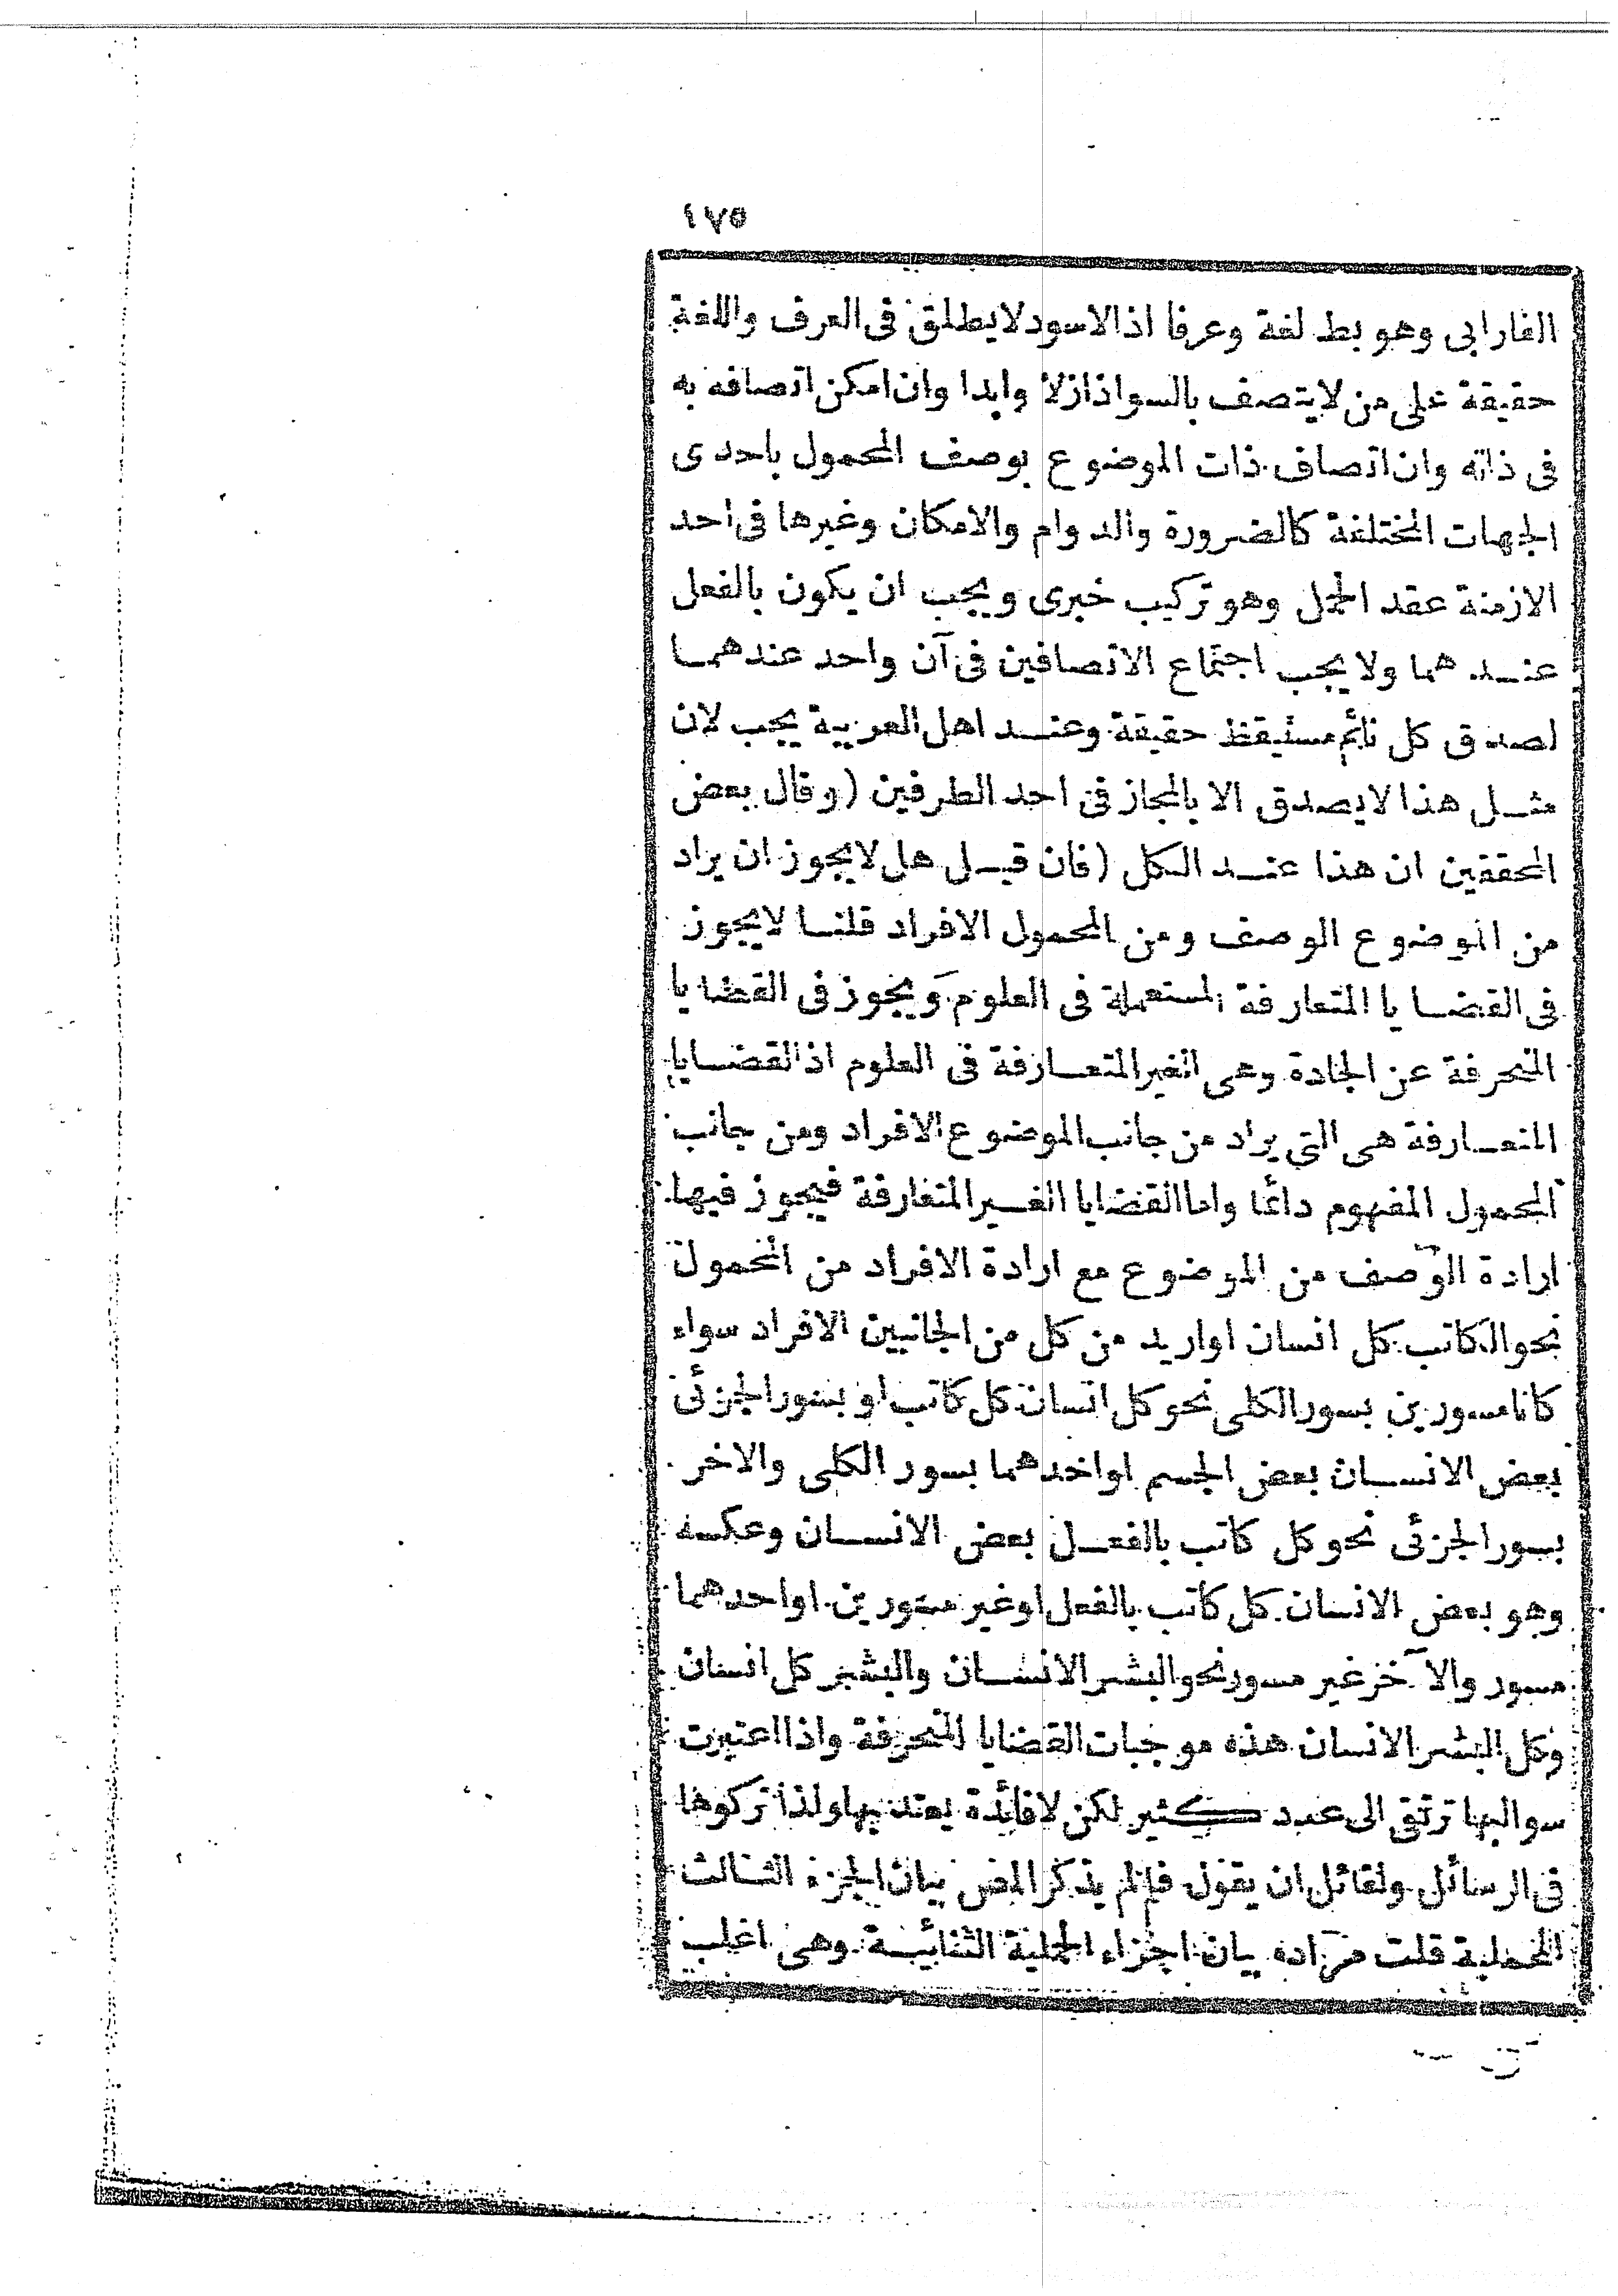 ١٧٥
الفارابى وهو بط لغة وعرفا اذ الاسود لا يطلق فى العرف واللغة
حقيقة على من لا يتصف بالسواد ازلا وابدا وان امكن اتصافه به
فى ذاته وان اتصاف ذات الموضوع بوصف المحمول باحدى
الجهات المختلفة كالضرورة والدوام والامكان وغيرها فى احد
الازمنة عقد الحمل وهو تركيب خبرى ويجب ان يكون بالفعل
عندهما ولا يجب اجتماع الاتصافين فى آن واحد عندهما
لصدق كل نائم مستيقظ حقيقة وعند اهل العربية يجب لان
مثل هذا لا يصدق الا بالمجاز فى احد الطرفين (وقال بعض
المحققين ان هذا عند الكل (فان قيل هل لا يجوز ان يراد
من الموضوع الوصف ومن المحمول الافراد قلنا لا يجوز
فى القضايا المتعارفة المستعملة فى العلوم ويجوز فى القضايا
المنحرفة عن الجادة وهى الغير المتعارفة فى العلوم اذ القضايا
المتعارفة هى التى يراد من جانب الموضوع الافراد ومن جانب
المحمول المفهوم دائما واما القضايا الغير المتعارفة فيجوز فيها
ارادة الوصف من الموضوع مع ارادة الافراد من المحمول
نحو الكاتب كل انسان او اريد من كل من الجانبين الافراد سواء
كانا مسورين بسور الكلى نحو كل انسان كل كاتب او بسور الجزئى
بعض الانسان بعض الجسم او احدهما بسور الكلى والاخر
بسور الجزئى نحو كل كاتب بالفعل بعض الانسان وعكسه
وهو بعض الانسان كل كاتب بالفعل او غير مسورين او احدهما
مسور والآخر غير مسور نحو البشر الانسان والبشر كل انسان
وكل البشر الانسان هذه موجبات القضايا المنحرفة واذا اعتبرت
سوالبها ترتقى الى عدد كثير لكن لا فائدة يعتد بها ولذا تركوها
فى الرسائل ولقائل ان يقول فلم لم يذكر المص بيان الجزء الثالث
للحملية قلت مراده بيان اجزاء الحملية الثنائية وهى اغلب